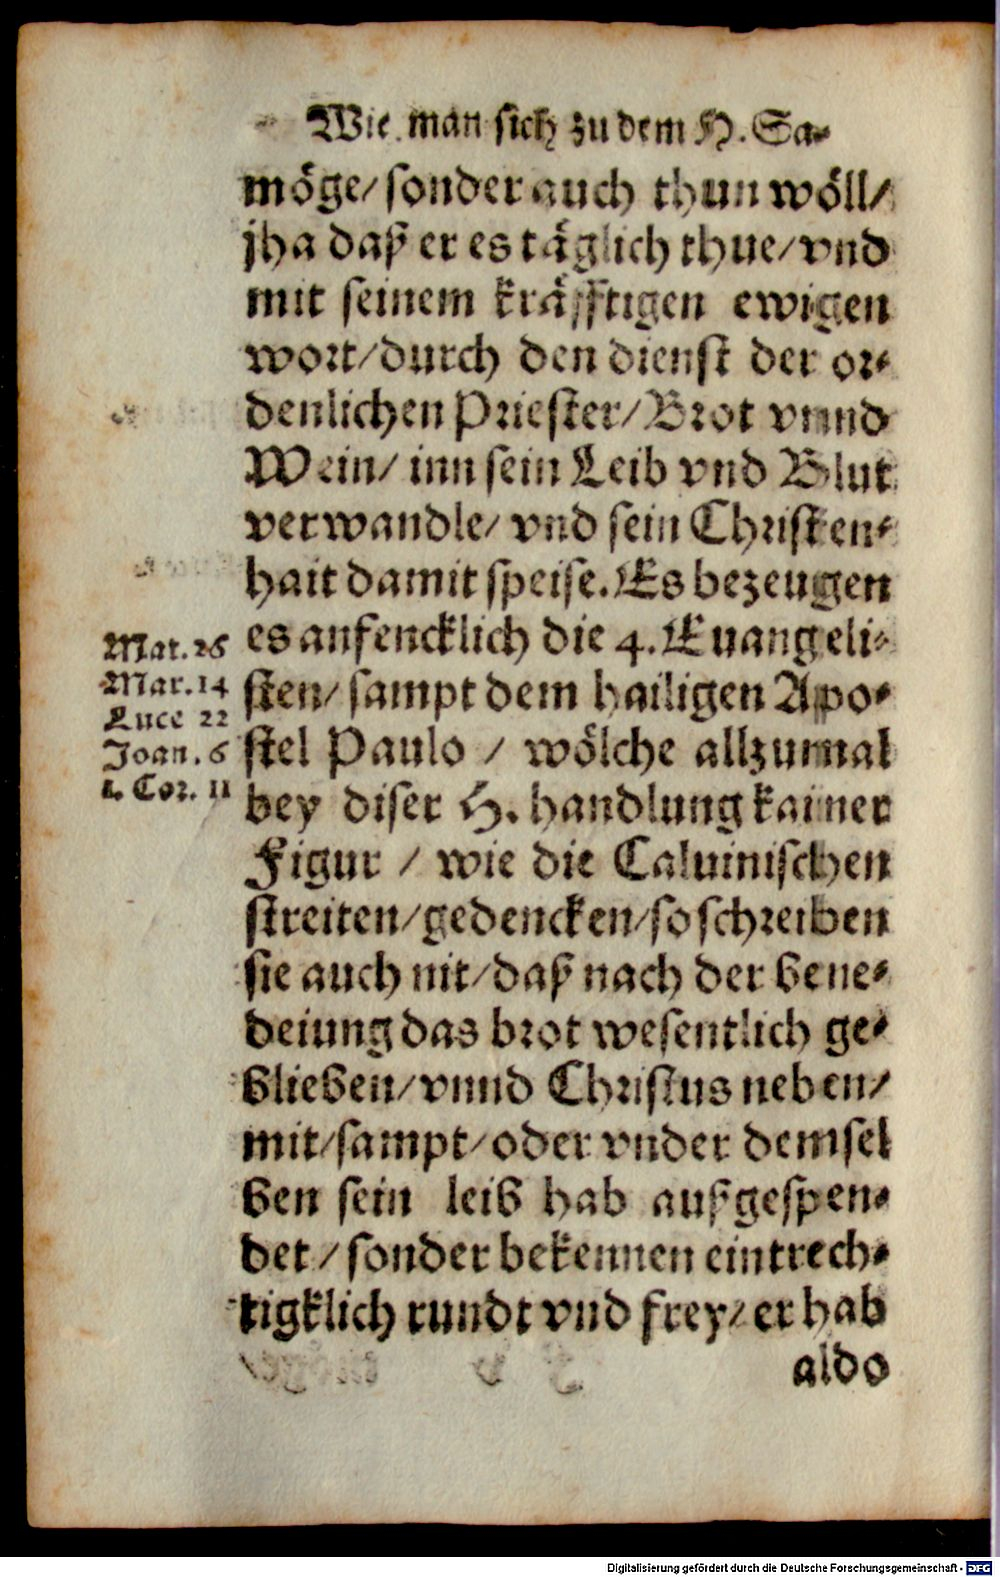 Wie man sich zu dem H. Sa-
möge/ sonder auch thun wöll/
jha daß er es täglich thue/ vnd
mit seinem kräfftigen ewigen
wort/ durch den dienst der or-
denlichen Priester/ Brot vnnd
Wein/ inn sein Leib vnd Blut
verwandle/ vnd sein Christen-
hait damit speise. Es bezeugen
es anfencklich die 4. Euangeli-
sten/ sampt dem hailigen Apo-
stel Paulo / wölche allzumal
bey diser H. handlung kainer
Figur / wie die Caluinischen
streiten/ gedencken/ so schreiben
sie auch nit/ daß nach der bene-
deiung das brot wesentlich ge-
blieben/ vnnd Christus neben/
mit/ sampt/ oder vnder demsel
ben sein leib hab außgespen-
det / sonder bekennen eintrech-
tigklich rundt vnd frey/ er hab
aldo
Mat. 26
Mar. 14
Luce 22
Joan. 6
1. Cor. 11
Digitalisierung gefördert durch die Deutsche Forschungsgemeinschaft - DFG